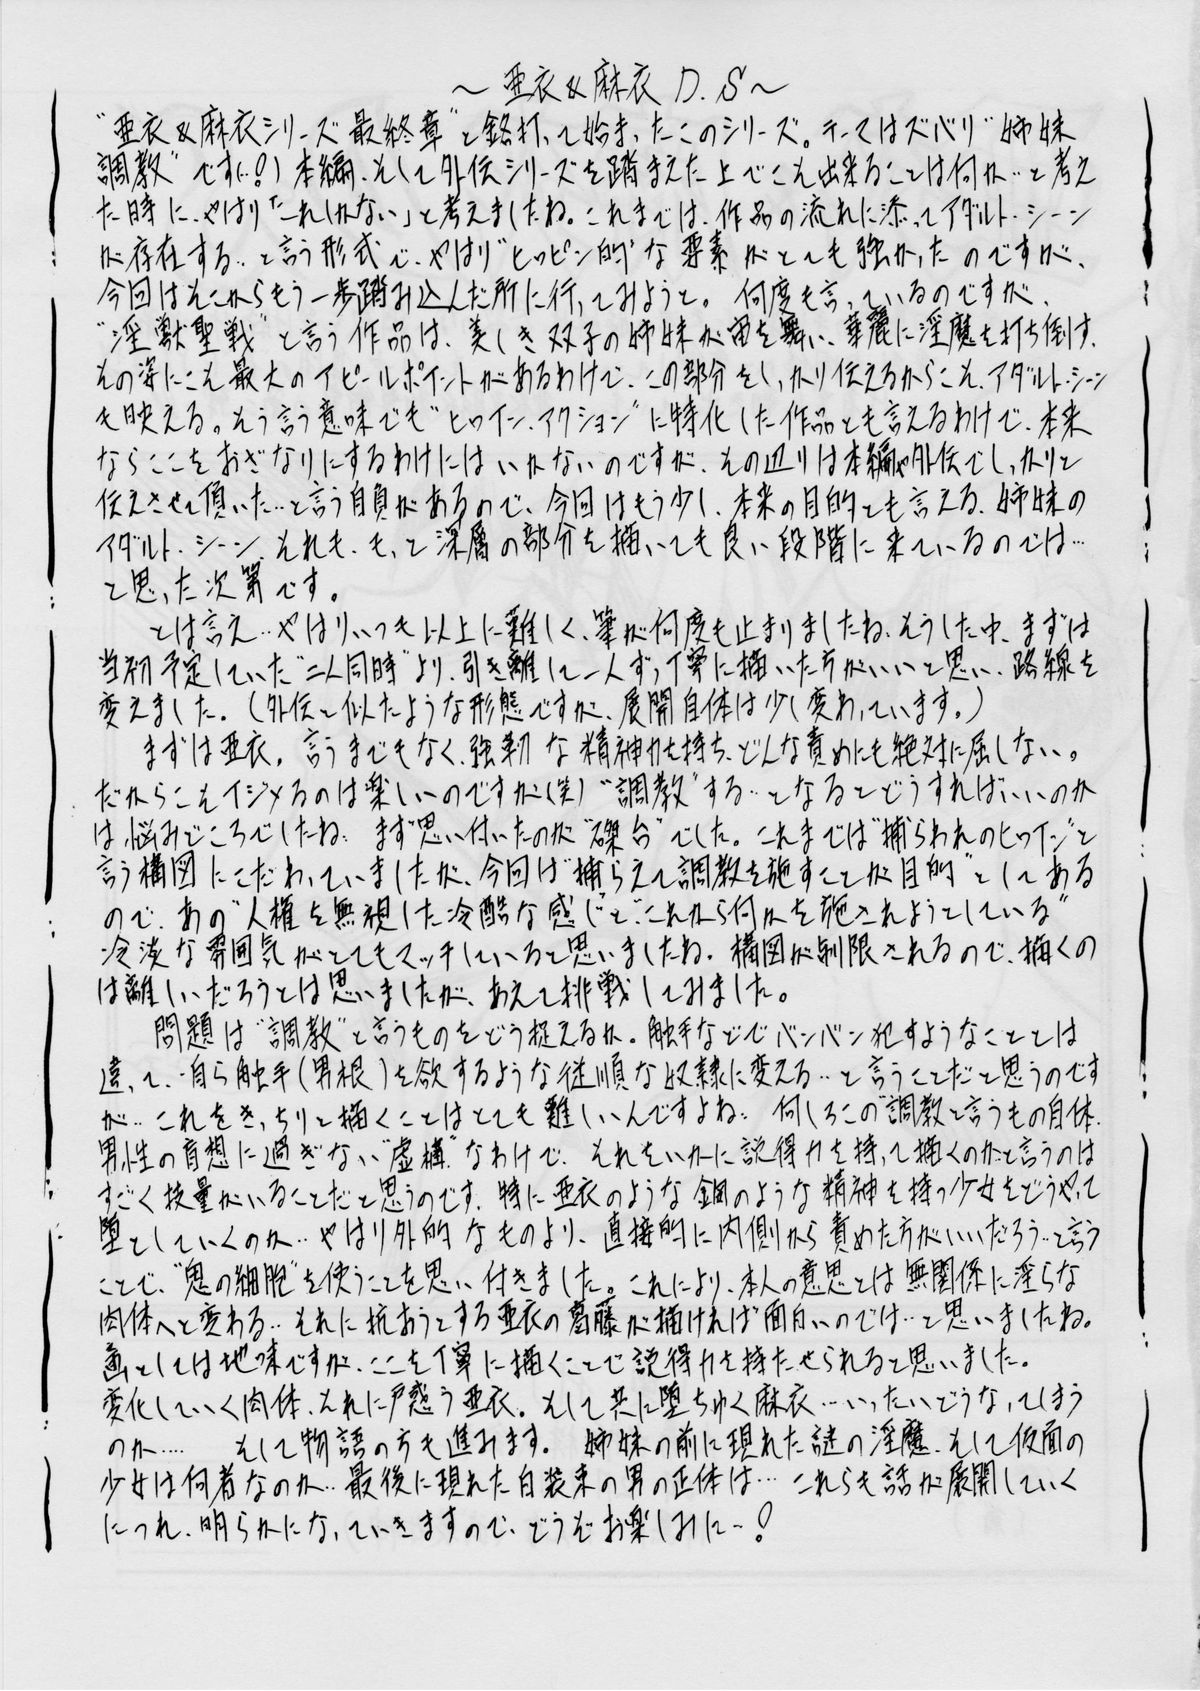 ～亜衣&麻衣 D.S～
"亜衣&麻衣シリーズ最終章"と銘打って始まったこのシリーズ。テーマはズバリ"姉妹
調教"です(…!) 本編、そして外伝シリーズを踏まえた上でこそ出来ることは何か…と考え
た時に、やはり「これしかない」と考えましたね。これまでは、作品の流れに添ってアダルト・シーン
が存在する…と言う形式で、やはり"ヒロピン的"な要素がとても強かったのですが、
今回はそこからもう一歩踏み込んだ所に行ってみようと。何度も言っているのですが、
"淫獣聖戦"と言う作品は、美しき双子の姉妹が宙を舞い、華麗に淫魔を打ち倒す、
その姿にこそ最大のアピールポイントがあるわけで、この部分をしっかり伝えるからこそ、アダルト・シーン
も映える。そう言う意味でも"ヒロイン・アクション"に特化した作品とも言えるわけで、本来
ならここをおざなりにするわけにはいかないのですが、その辺りは本編や外伝でしっかりと
伝えさせて頂いた…と言う自負があるので、今回はもう少し、本来の目的とも言える、姉妹の
アダルト・シーン、それも、もっと深層の部分を描いても良い段階に来ているのでは…
と思った次第です。
とは言え…やはりいつも以上に難しく、筆が何度も止まりましたね、そうした中、まずは
当初予定していた"二人同時"より、引き離して一人ずつ丁寧に描いた方がいいと思い、路線を
変えました。(外伝と似たような形態ですが、展開自体は少し変わっています。)
まずは亜衣。言うまでもなく、強靭な精神力を持ち、どんな責めにも絶対に屈しない。
だからこそイジメるのは楽しいのですが(笑)"調教"する…となるとどうすればいいのか
は、悩みどころでしたね… まず思い付いたのが"磔台"でした。これまでは"捕らわれのヒロイン"と
言う構図にこだわっていましたが、今回は"捕らえて調教を施すことが目的"としてある
ので、あの"人権を無視した冷酷な感じ"と"これから何かを施されようとしている"
冷淡な雰囲気がとてもマッチしていると思いましたね。構図が制限されるので、描くの
は難しいだろうとは思いましたが、あえて挑戦してみました。
問題は"調教"と言うものをどう捉えるか。触手などでバンバン犯すようなこととは
違って、自ら触手(男根)を欲するような従順な奴隷に変える…と言うことだと思うのです
が…これをきっちりと描くことはとても難しいんですよね… 何しろこの"調教"と言うもの自体、
男性の盲想に過ぎない"虚構"なわけで、それをいかに説得力を持って描くのかと言うのは
すごく技量がいることだと思うのです。特に亜衣のような鋼のような精神を持つ少女をどうやって
堕としていくのか…やはり外的なものより、直接的に内側から責めた方がいいだろう…と言う
ことで、"鬼の細胞"を使うことを思い付きました。これにより、本人の意思とは無関係に淫らな
肉体へと変わる…それに抗おうとする亜衣の葛藤が描ければ面白いのでは…と思いましたね。
画としては地味ですが、ここを丁寧に描くことで説得力を持たせられると思いました。
変化していく肉体、それに戸惑う亜衣。そして共に堕ちゆく麻衣…いったいどうなってしまう
のか…… そして物語の方も進みます。姉妹の前に現れた謎の淫魔、そして仮面の
少女は何者なのか…最後に現れた白装束の男の正体は… これらも話が展開していく
につれ、明らかになっていきますので、どうぞお楽しみに…!